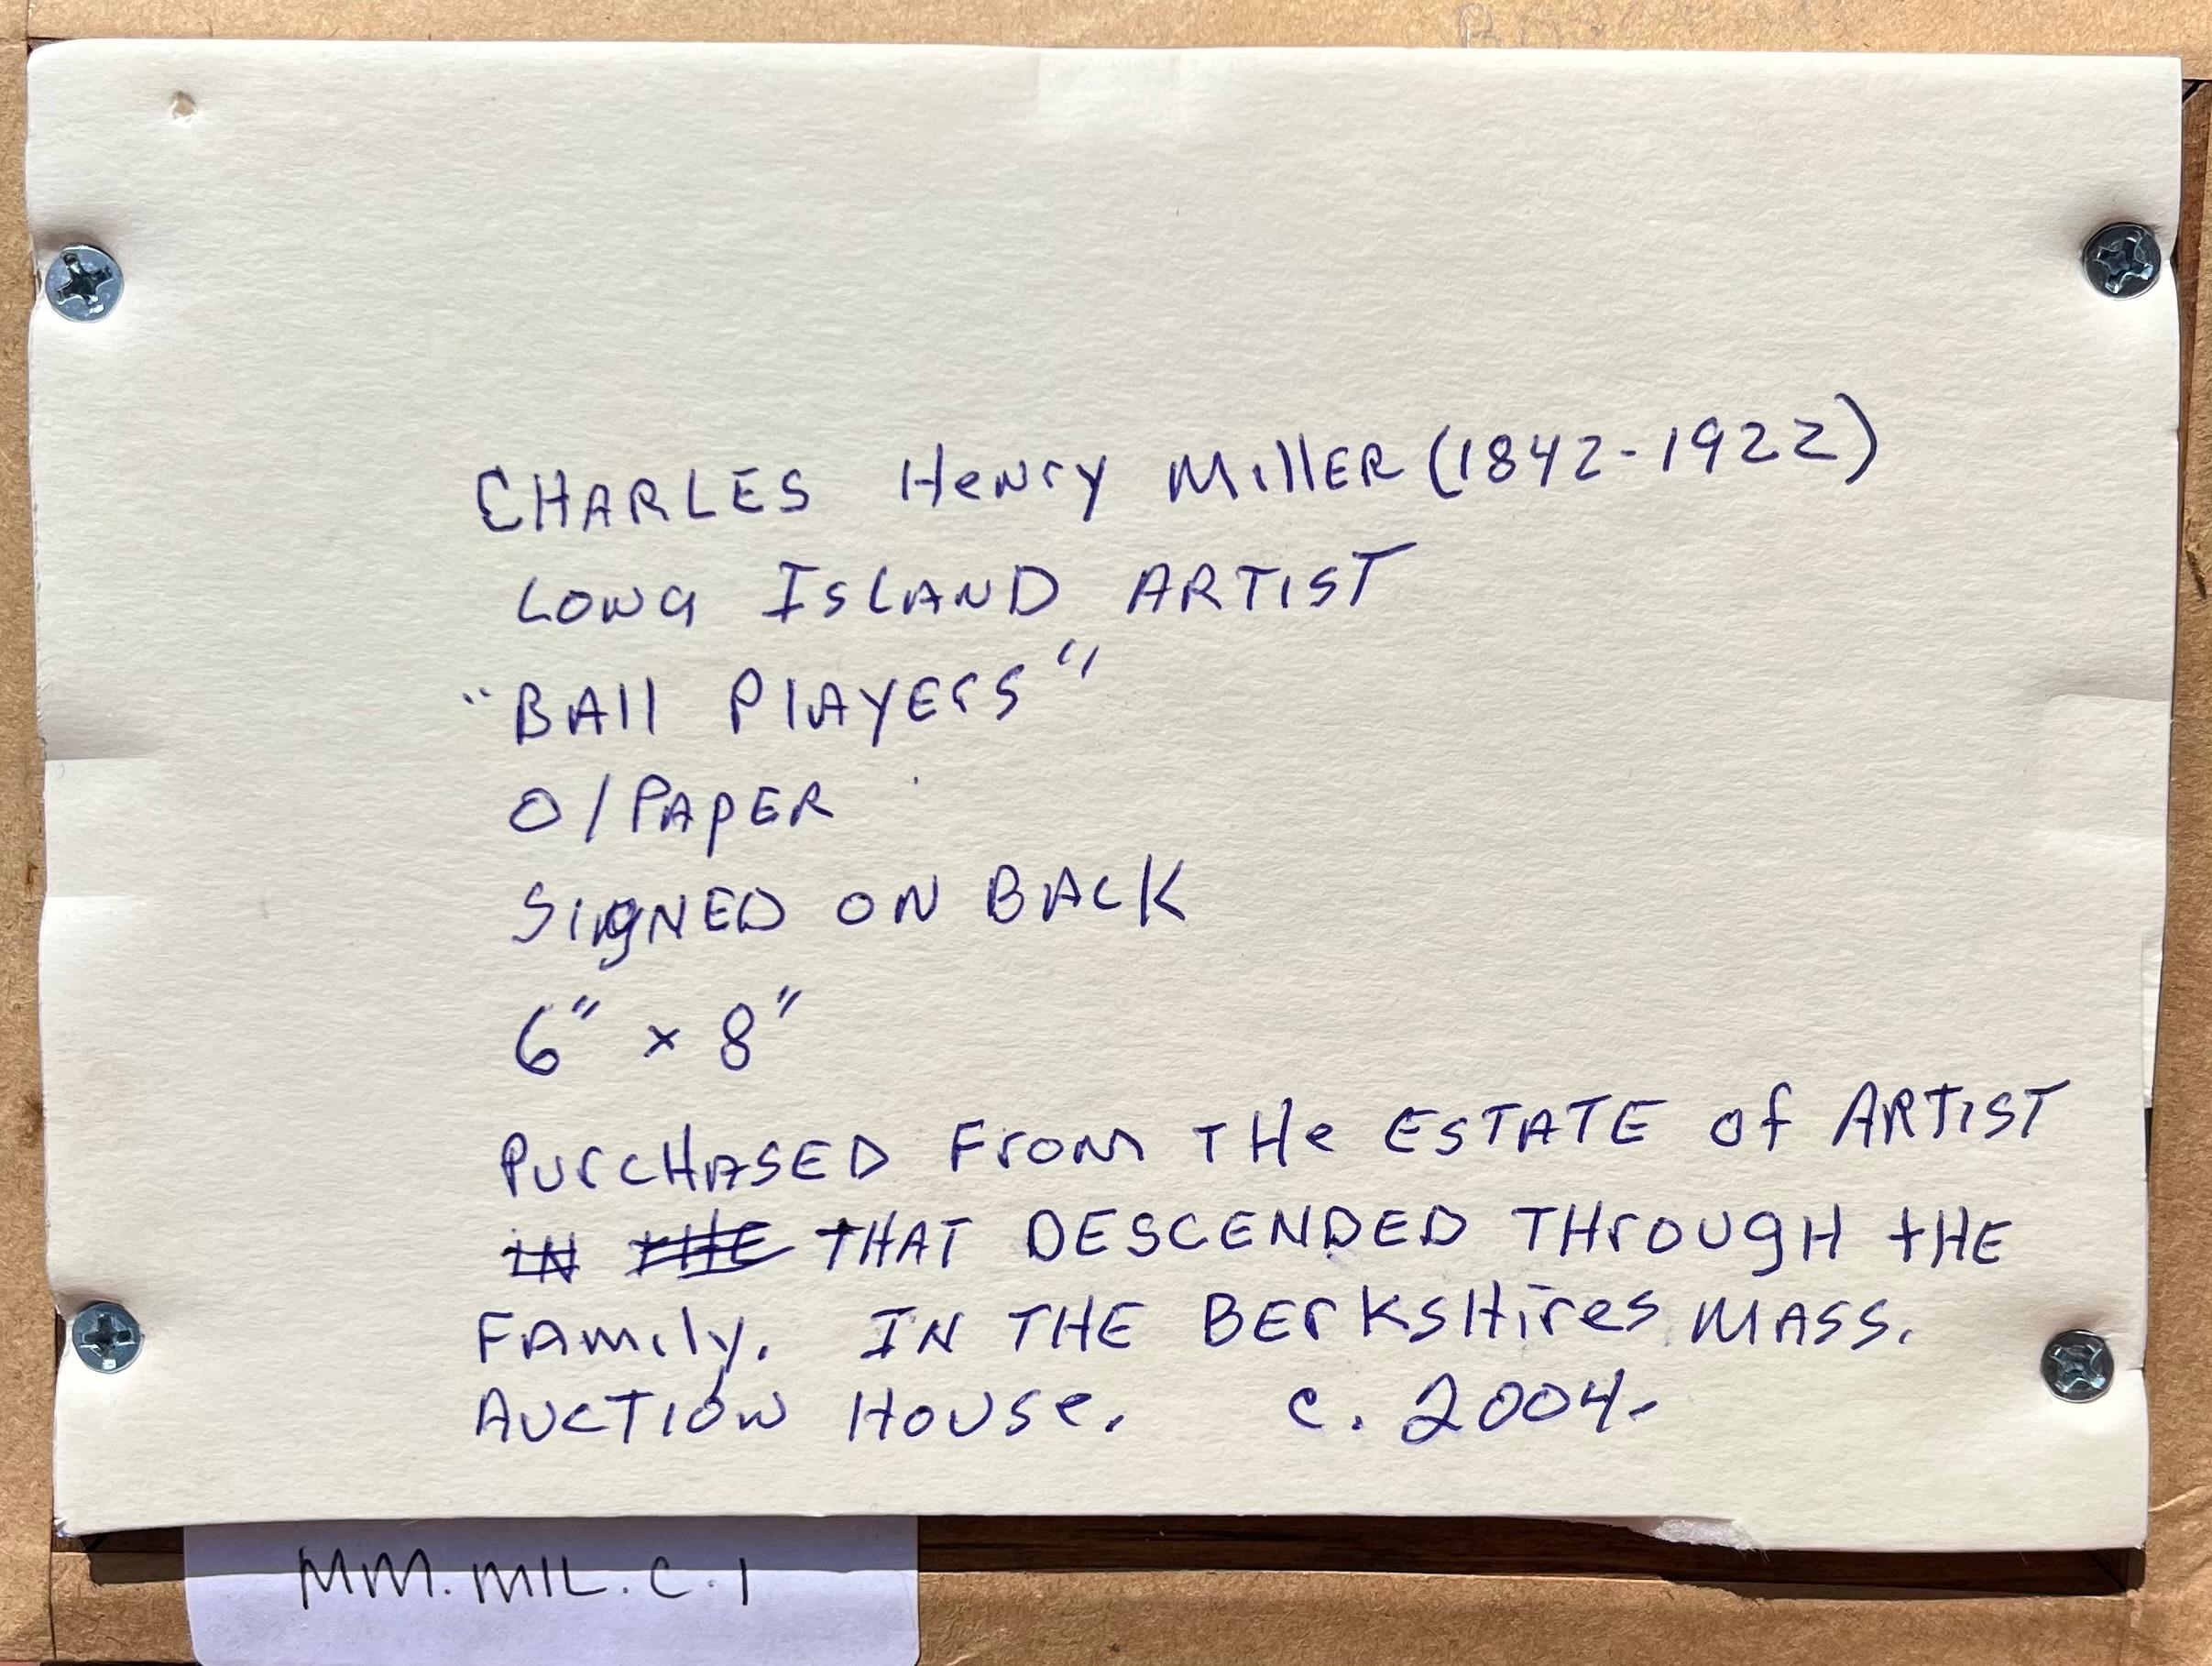 CHARLES Henry MillER (1842-1922)
LONG ISLAND ARTIST
"BAll PlAYErS"
O/PAPER
SIgNED ON BACK
6" x 8"
PUrCHASED FrOM THe ESTATE of ARTIST
IN THE THAT DESCENDED THrOUgH tHE
FAmily. IN THE BErkSHires MASS.
AUCTION HOUSe. c. 2004.
MM.MIL.C.1